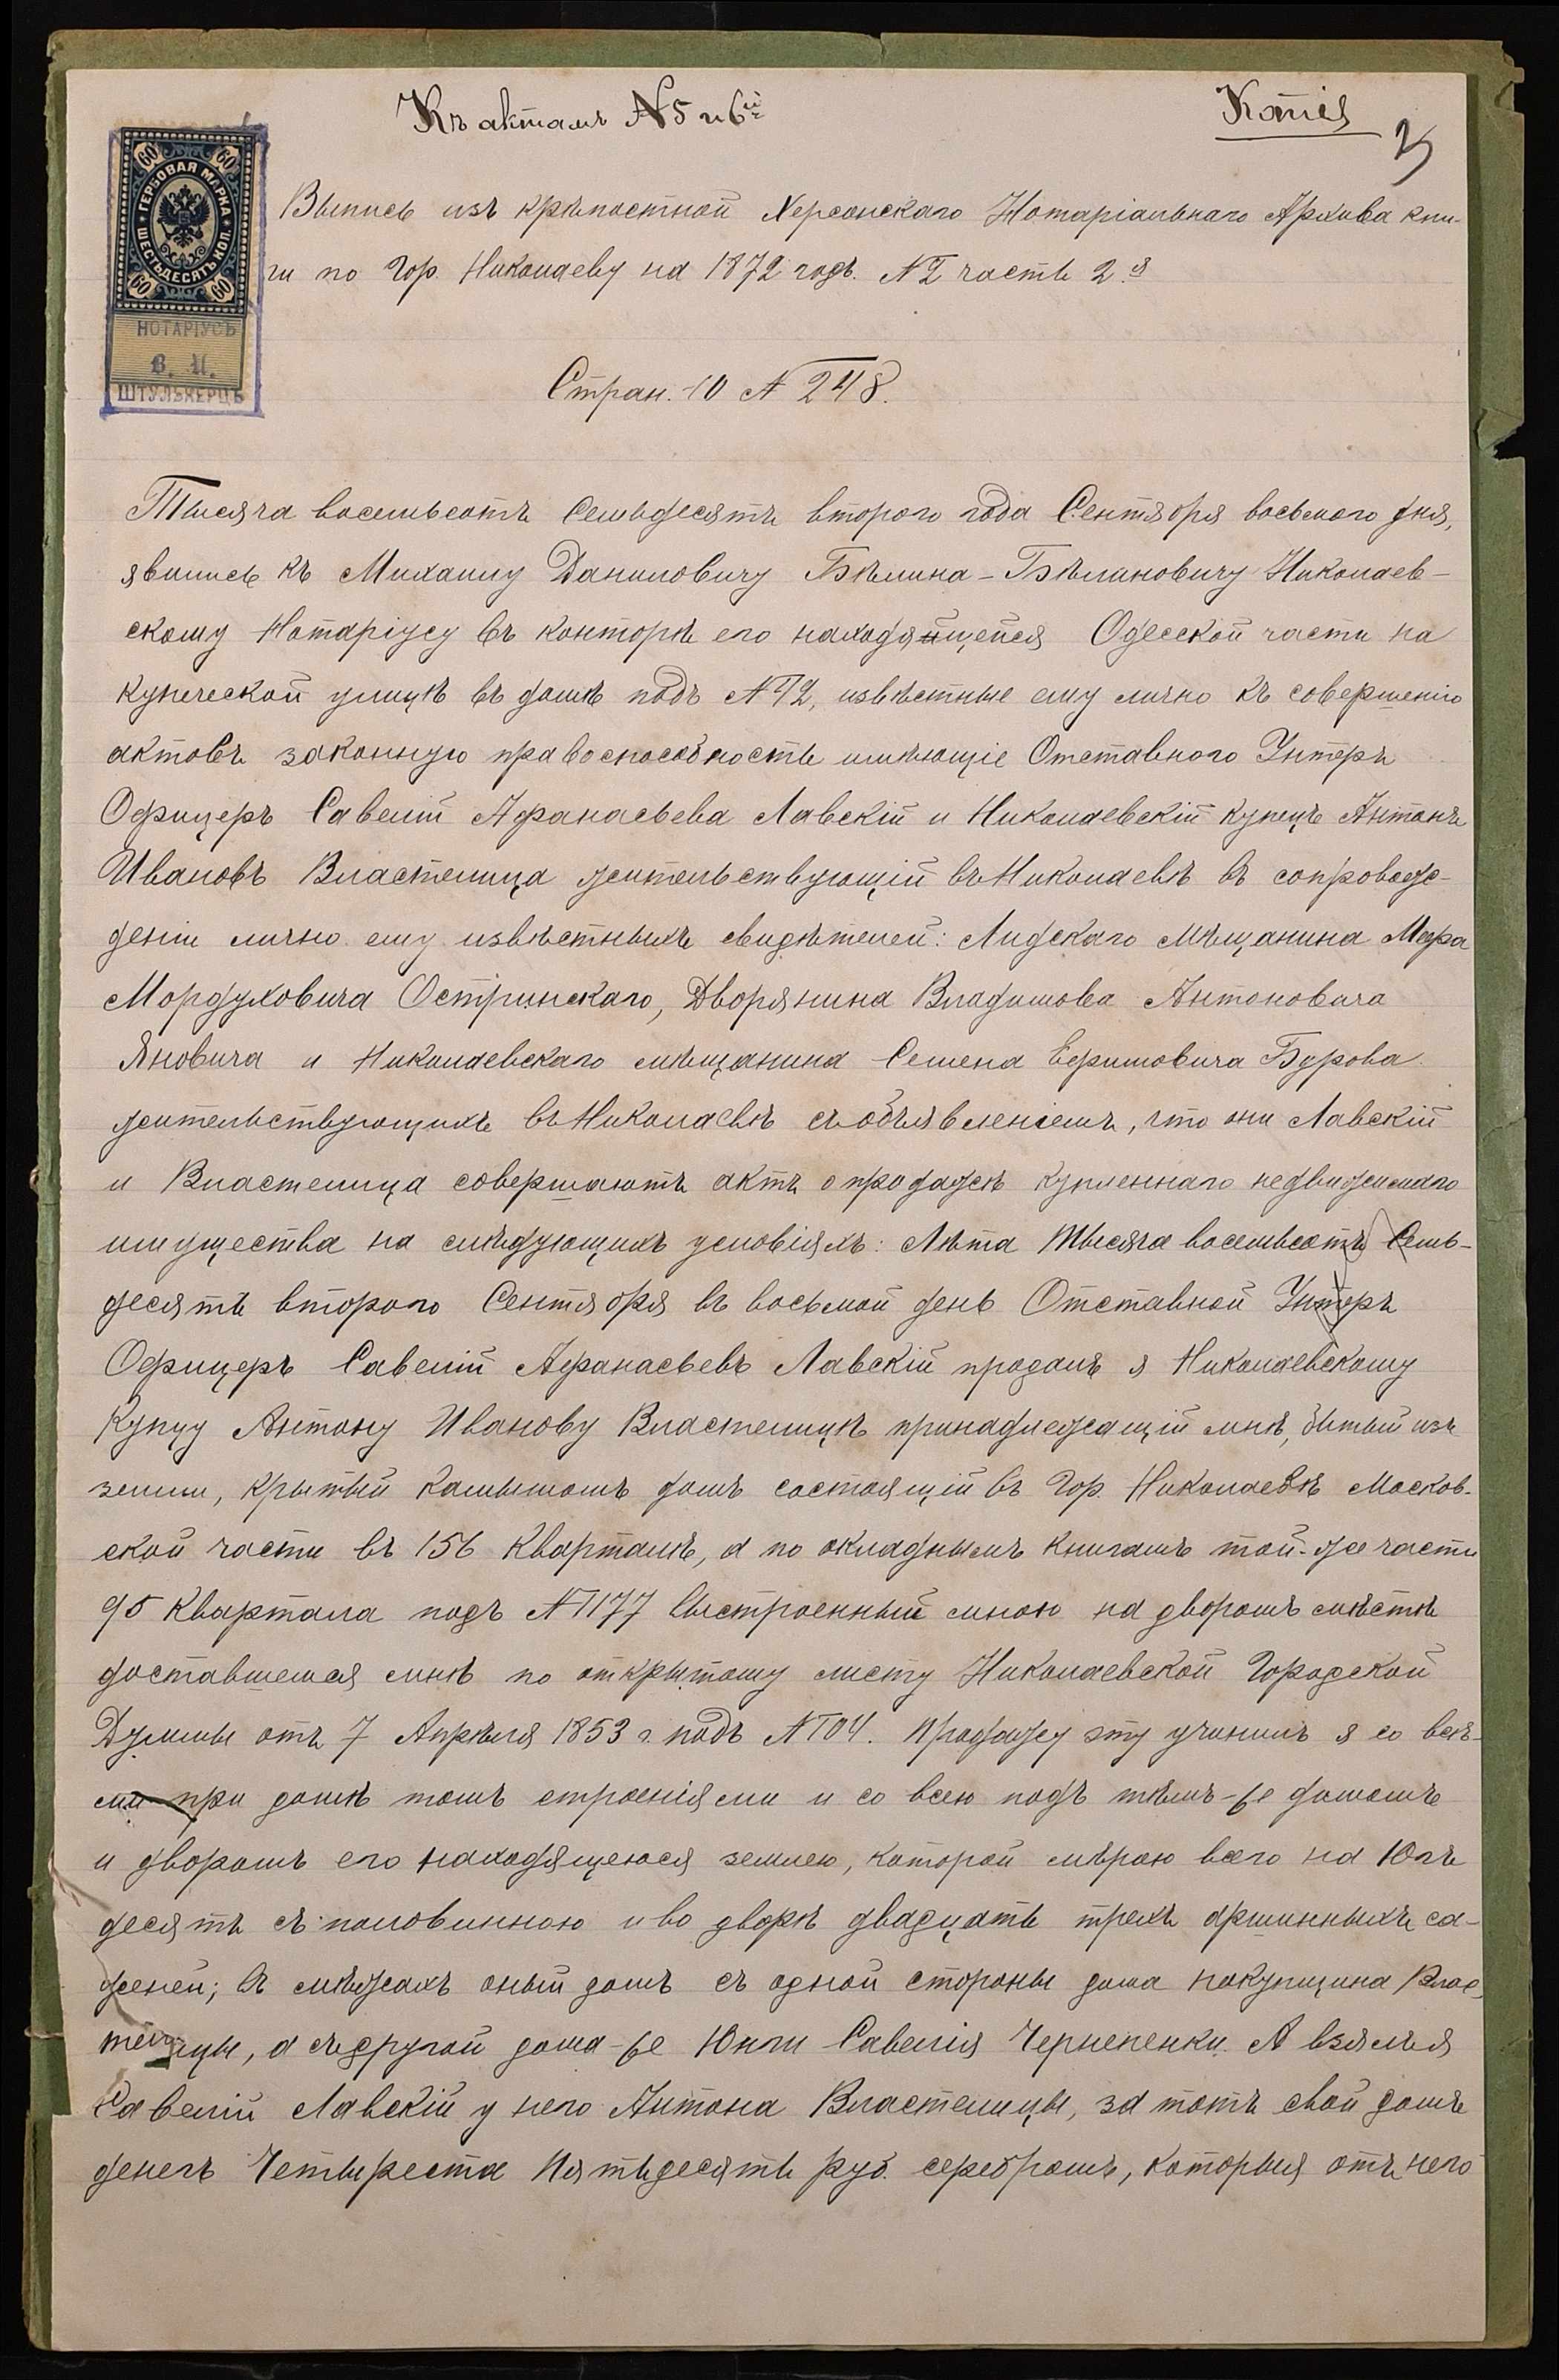 Къ актамъ № 5 и 6й
Копія
ГЕРБОВАЯ МАРКА
ШЕСТЬДЕСЯТЪ КОП.
60 60
60 60
НОТАРІУСЪ
В. И.
ШТУЛЬКЕРЦЪ
Выпись изъ крѣпостной Херсонскаго Нотаріальнаго Архива кни-
ги по Гор. Николаеву на 1872 годъ. № 2 часть 2.я
Стран. 10 № 248.
Тысяча восемьсотъ Семьдесятъ второго года Сентября восьмого дня,
явились къ Михаилу Даниловичу Бѣлина-Бѣлиновичу Николаев-
скому Нотаріусу въ конторѣ его находящейся Одесской части на
купеческой улицѣ въ домѣ подъ № 12, извѣстные ему лично къ совершенію
актовъ законную правоспособность имѣющіе Отставного Унтеръ
Офицеръ Савелій Афанасьева Лавскій и Николаевскій купецъ Антонъ
Ивановъ Властелица жительствующій въ Николаевѣ въ сопровож-
деніи лично ему извѣстныхъ свидѣтелей: Лидскаго Мѣщанина Меера
Мордуховича Остринскаго, Дворянина Владимова Антоновича
Яновича и Николаевскаго мѣщанина Семена Ефимовича Бурова
жительствующихъ въ Николаевѣ съ объявленіемъ, что они Лавскій
и Властелица совершаютъ актъ о продажѣ купленнаго недвижимаго
имущества на слѣдующихъ условіяхъ: Лѣта Тысяча восемьсотъ Семь-
десятъ второго Сентября въ восьмой день Отставной Унтеръ
Офицеръ Савелій Афанасьевъ Лавскій продалъ я Николаевскому
Купцу Антону Иванову Властелицѣ принадлежащій мнѣ, битый изъ
земли, крытый камышомъ домъ состоящій въ Гор. Николаевѣ Москов-
ской части въ 156 Кварталѣ, а по окладнымъ книгамъ той-же части
95 Квартала подъ № 1177 выстроенный мною на дворомъ мѣстѣ
доставшемся мнѣ по открытому листу Николаевской Городской
Думмы отъ 7 Апрѣля 1853 г. подъ № 104. Продажу эту учинилъ я со всѣ-
ми при домѣ томъ строеніями и со всею подъ тѣмъ-же домомъ
и дворомъ его находящеюся землею, которой мѣрою всего на Югъ
десять съ половинною и во дворѣ двадцать трехъ аршинныхъ са-
женей; въ межахъ оный домъ съ одной стороны дома покупщика Влас-
телицы, а съ другой дома-же Юнги Савелія Черненки. А взялъ я
Савелій Лавскій у него Антона Властелицы, за тотъ свой домъ
денегъ Четыреста Пятьдесятъ руб. серебромъ, которыя отъ него